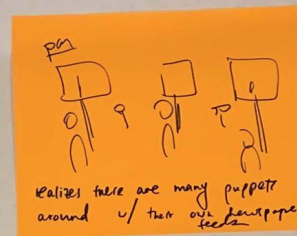 pan
realizes there are many puppets
around w/ their own newspaper
feeds